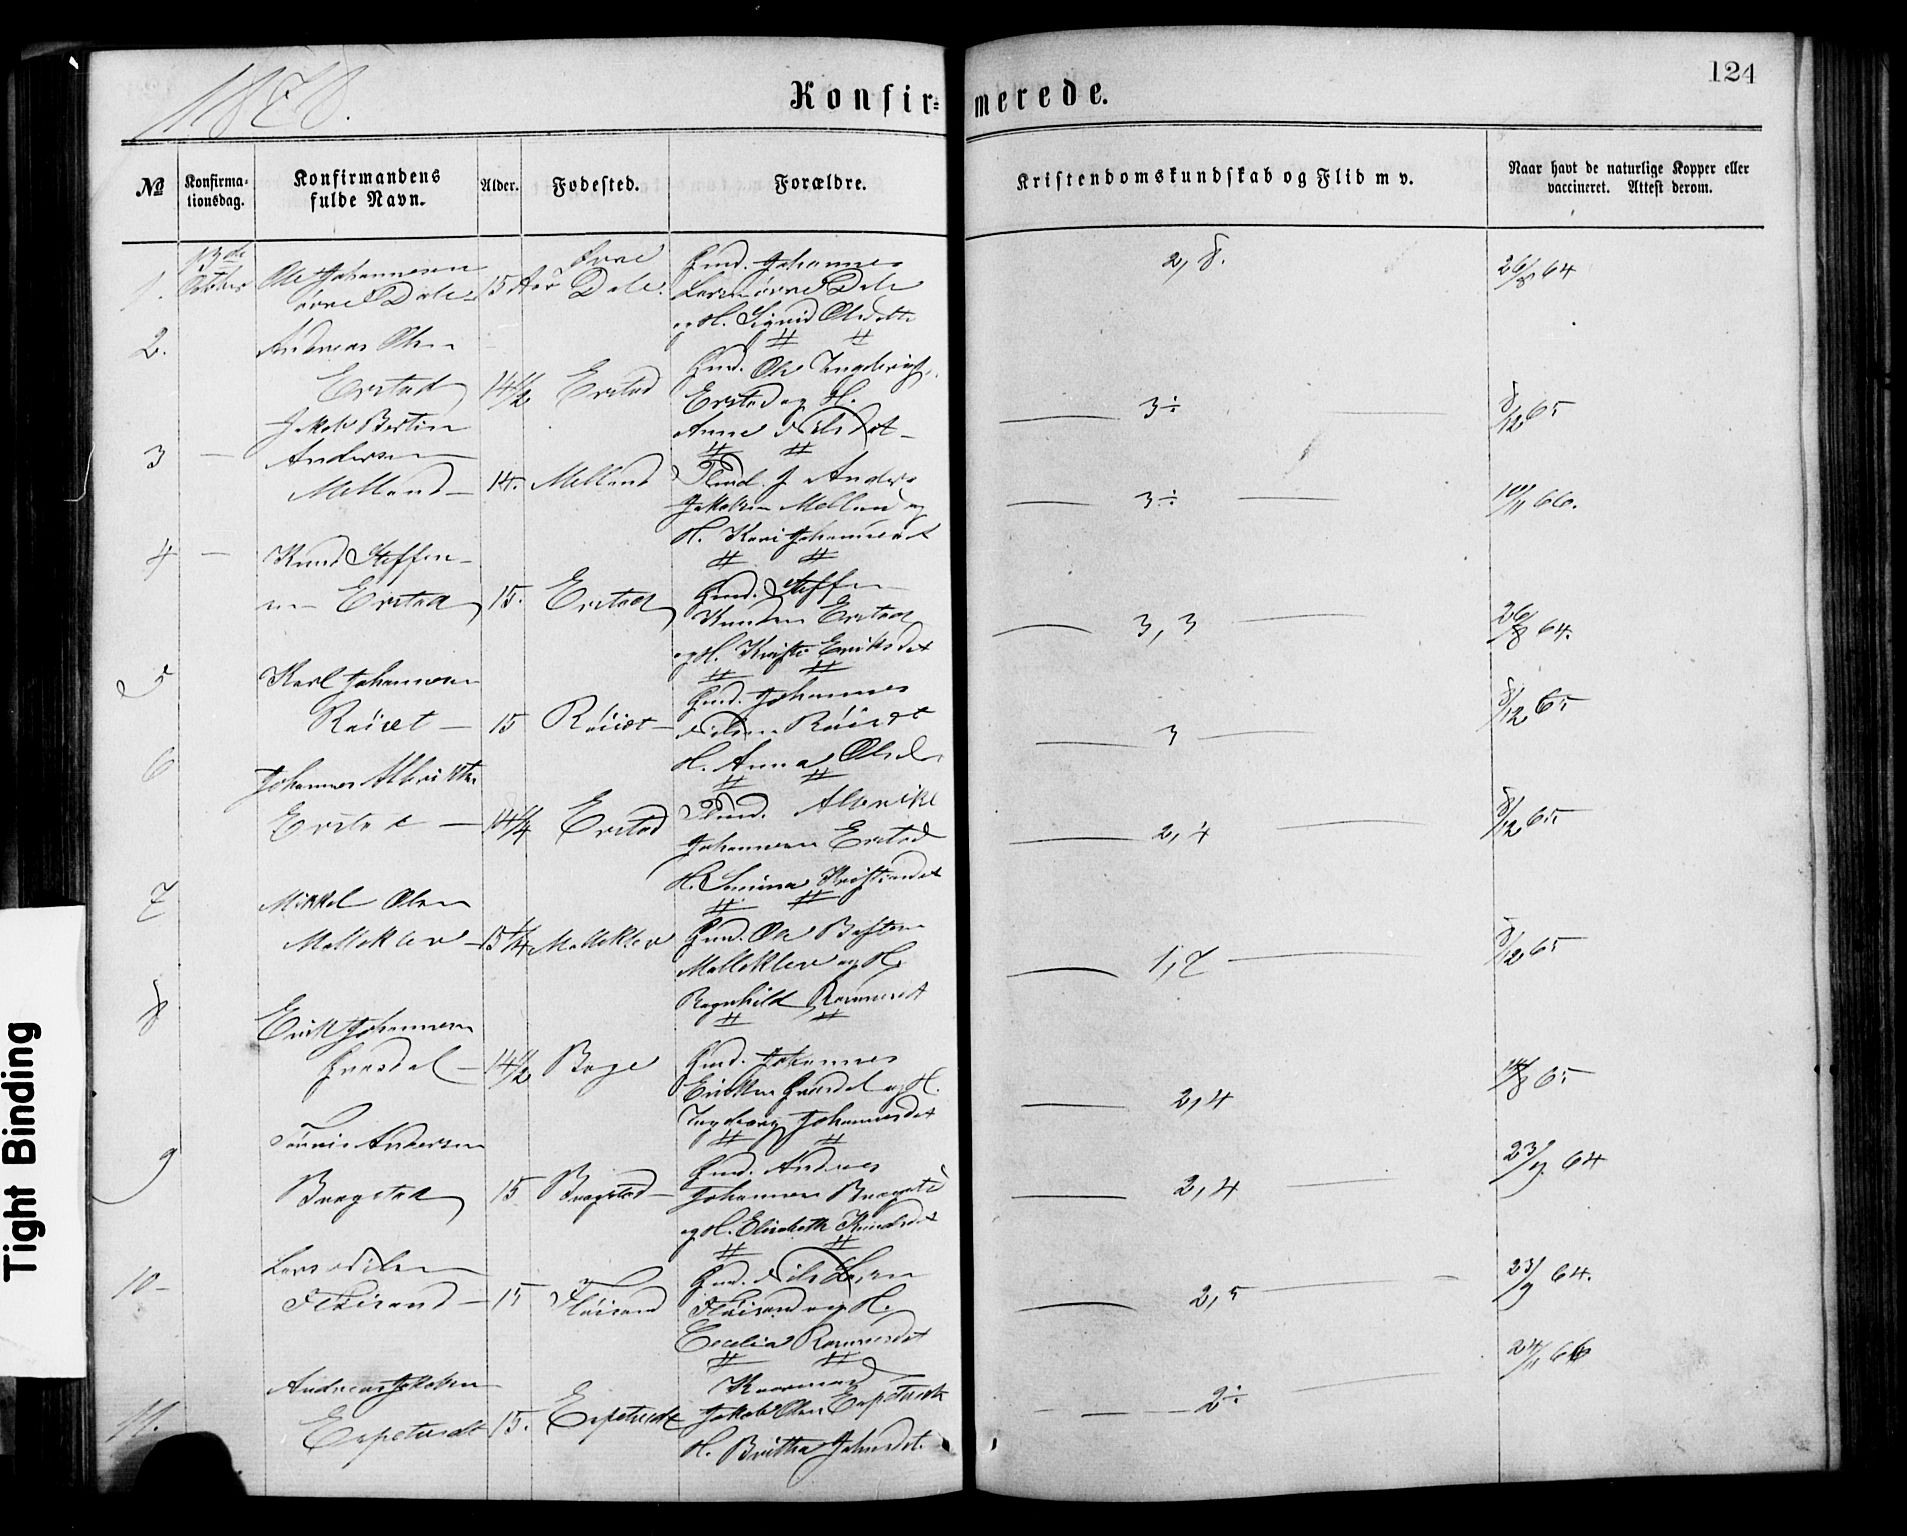 1878.
Konfir-
merede.
124
No
Konfirma-
tionsdag.
Konfirmandens
fulde Navn.
Alder.
Fødested.
Forældre.
Kristendomskundskab og Flid m v.
Naar havt de naturlige Kopper eller
vaccineret. Attest derom.
1.
13de
October
Ole Johannesen
øvre Dale
15 Aar
Øvre
Dale.
Gmd. Johannes
Larsen øvre Dale
og H. Sigrid Olsdatter
2, 8.
26/8 64
2.
Andreas Olsen
Erstad
14 1/2
Erstad
Gmd. Ole
Erstad og H.
Anne Nilsdat
3÷
8/12 65
3
Jakob Bertin
Andersen
Melland
14.
Melland
J Anders
Jakobsen Melland og
H. Kari Johannesdt
3÷
10/11 66.
4
Knud Steffen-
sen Erstad
15.
Erstad
Gmd. Steffen
Knudsen Erstad
og H. Eriksdat
3, 3
26/8 64.
5
Karl Johannesen
Røiset
15
Røiset
Gmd. Johannes
Nilsen Røiset
H. Anna Olsd
3
8/12 65
6
Johannes Albrikts.
Erstad
14 1/4
Erstad
Albrikt
Johannesen Erstad
H. Kristiansdat
2, 4
8/12 65
7
Mikkel Olsen
Molleklev
15 1/4
Molleklev
Gmd. Ole
Molleklev og H.
Ragnhild Rasmusdt
1, 7
8/12 65
8
Erik Johannesen
14 1/2
Gmd. Johannes
Eriksen og H.
Ingeborg Johannesdat
2, 4
65
9
Tønnes Andersen
Bragstad
15
Bragstad
Gmd. Andreas
Johannesen Bragstd
og H. Elisabeth Knudsdat
2, 4
23/9 64
10
Lars Nilsen
Fløisand
15
Fløisand
Gmd. Nils
Fløisand og H.
Cecelia Rasmusdat
2, 5
23/9 64.
11.
Andreas Jakobsen
Espetvedt
15.
Espetvedt
Huusmand
Jakob Olsen Espetvedt
H. Britha Johnsdt.
2÷
24/11 66
Tight Binding